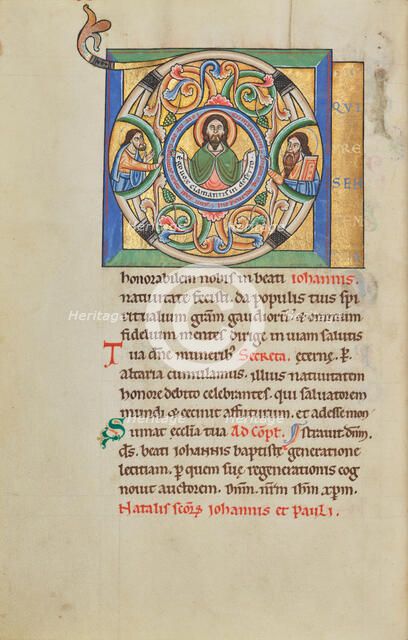 QVI
Ego vox clamantis in deserto
honorabilem nobis in beati iohannis
nativitate fecisti. da populis tuis spi
ritualium grãm gaudiorũ. & omnium
fidelium mentes dirige in viam salutis
Tua dñe munerib; Secreta. eterne. p̃.
altaria cumulamus. illius nativitatem
honore debito celebrantes. qui salvatorem
mundi & cecinit affuturum. et adesse mon
Sumat ecclĩa tua Ad cõpl.
d̃s. beati iohannis baptistę generatione
letitiam. per quem suę regenerationis cog
novit auctorem. dñm. nrm̃ ihm̃ xpm̃.
Natalis sc̃orũ iohannis et pauli.
Heritage Images